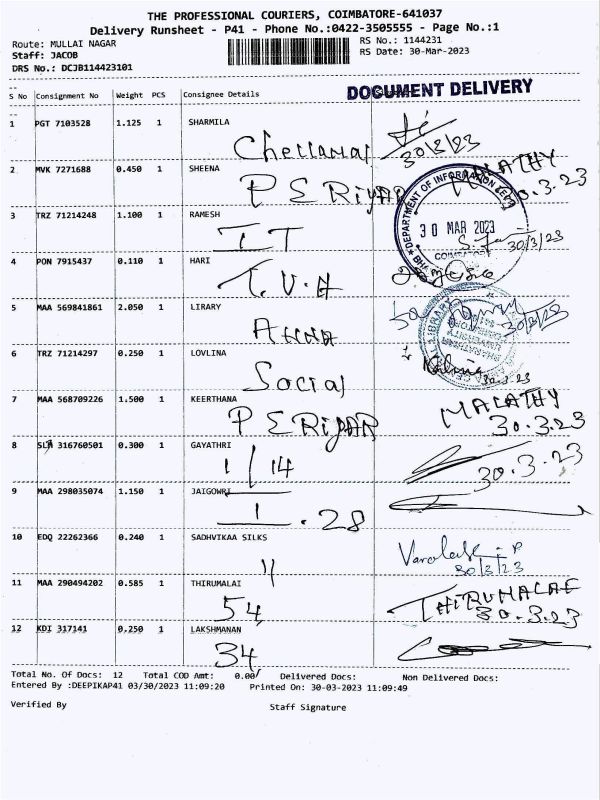 THE PROFESSIONAL COURIERS, COIMBATORE-641037
Delivery Runsheet - P41 - Phone No.:0422-3505555 - Page No.:1
Route: MULLAI NAGAR
RS No.: 1144231
Staff: JACOB
RS Date: 30-Mar-2023
DRS No.: DCJB114423101
DOCUMENT DELIVERY
S No Consignment No Weight PCS Consignee Details
1 PGT 7103528 1.125 1 SHARMILA
Chellamal 30/3/23
2 MVK 7271688 0.450 1 SHEENA
PERiyAR MALATHY 30.3.23
3 TRZ 71214248 1.100 1 RAMESH
IT
DEPARTMENT OF INFORMATION
30 MAR 2023
30/3/23
COIMBATORE
4 PON 7915437 0.110 1 HARI
T.V.A
5 MAA 569841861 2.050 1 LIRARY
ANNA 30/3/23
LIBRARY
6 TRZ 71214297 0.250 1 LOVLINA
Social 30.3.23
7 MAA 568709226 1.500 1 KEERTHANA
PERiyAR MALATHY
30.3.23
8 SLA 316760501 0.300 1 GAYATHRI
1/14 30.3.23
9 MAA 298035074 1.150 1 JAIGOWRI
1.28
10 EDQ 22262366 0.240 1 SADHVIKAA SILKS
30/3/23
11 MAA 290494202 0.585 1 THIRUMALAI
54 THIRUMALAE
30.3.23
12 KDI 317141 0.250 1 LAKSHMANAN
34
Total No. Of Docs: 12 Total COD Amt: 0.00/ Delivered Docs: Non Delivered Docs:
Entered By :DEEPIKAP41 03/30/2023 11:09:20 Printed On: 30-03-2023 11:09:49
Verified By Staff Signature